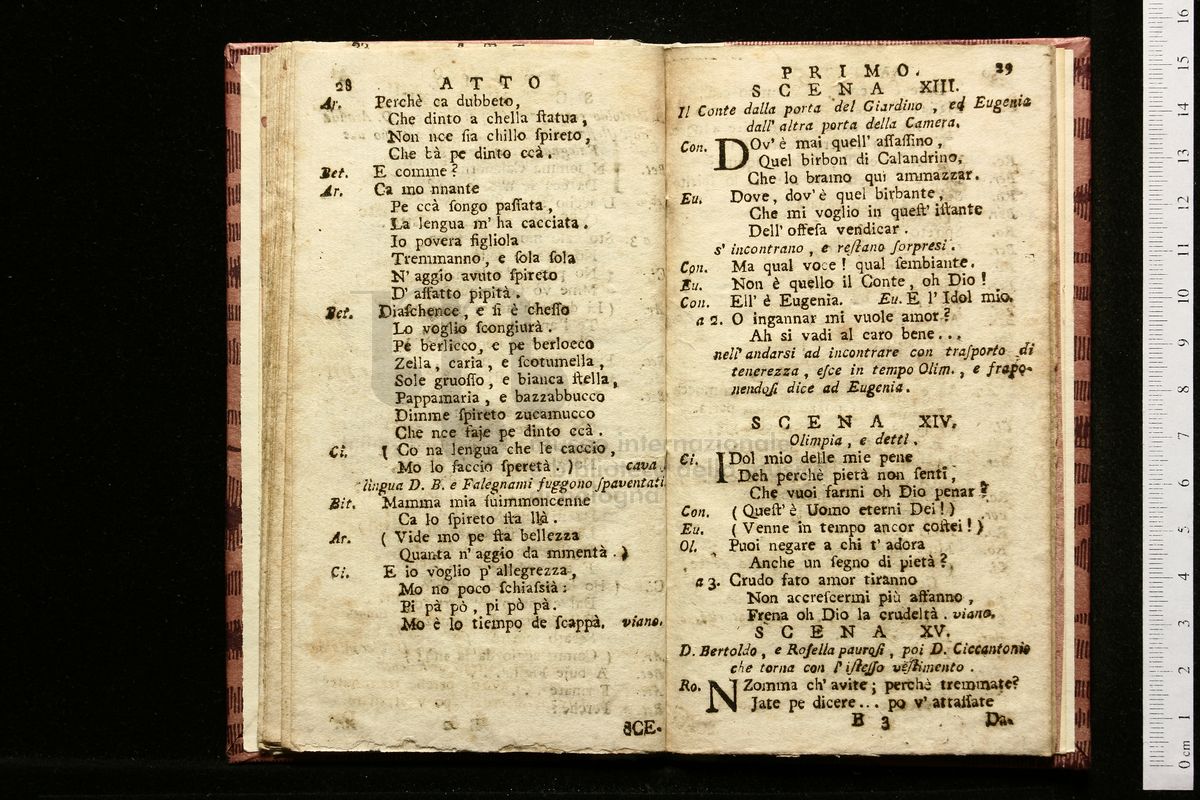 28 ATTO
Ar. Perchè ca dubbeto,
Che dinto a chella ſtatua,
Non nce ſia chillo ſpireto,
Che tà pe dinto ccà.
Bet. E comme?
Ar. Ca mo nnante
Pe ccà ſongo paſſata,
La lengua m' ha cacciata.
Io povera figliola
Tremmanno, e ſola ſola
N' aggio avuto ſpireto
D' aſſatto pipità.
Bet. Diaſchence, e ſi è cheſſo
Lo voglio ſcongiurà.
Pé berlicco, e pe berlocco
Zella, caria, e ſcotumella,
Sole gruoſſo, e bianca ſtella,
Pappamaria, e bazzabbucco
Dimme ſpireto zucamucco
Che nce faje pe dinto ccà.
Ci. ( Co na lengua che le caccio,
Mo lo faccio ſperetà. ) cava
lingua D. B. e Falegnami fuggono ſpaventati.
Bit. Mamma mia ſuimmoncenne
Ca lo ſpireto ſta llà.
Ar. ( Vide mo pe ſta bellezza
Quanta n' aggio da mmentà. )
Ci. E io voglio p' allegrezza,
Mo no poco ſchiaſſià:
Pi pà pò, pi pò pà.
Mo è lo tiempo de ſcappà. viano.
SCE-
PRIMO. 29
SCENA XIII.
Il Conte dalla porta del Giardino, ed Eugenia
dall' altra porta della Camera.
Con. DOv' è mai quell' aſſaſſino,
Quel birbon di Calandrino,
Che lo bramo qui ammazzar.
Eu. Dove, dov' è quel birbante,
Che mi voglio in queſt' iſtante
Dell' offeſa vendicar.
s' incontrano, e reſtano ſorpreſi.
Con. Ma qual voce! qual ſembiante.
Eu. Non è quello il Conte, oh Dio!
Con. Ell' è Eugenia. Eu. E l' Idol mio.
a 2. O ingannar mi vuole amor?
Ah si vadi al caro bene...
nell' andarsi ad incontrare con traſporto di
tenerezza, eſce in tempo Olim., e frapo-
nendoſi dice ad Eugenia.
SCENA XIV.
Olimpia, e detti.
Ci. IDol mio delle mie pene
Deh perchè pietà non ſenti,
Che vuoi farmi oh Dio penar?
Con. ( Queſt' è Uomo eterni Dei! )
Eu. ( Venne in tempo ancor coſtei! )
Ol. Puoi negare a chi t' adora
Anche un ſegno di pietà?
a 3. Crudo fato amor tiranno
Non accreſcermi più affanno,
Frena oh Dio la crudeltà. viano.
SCENA XV.
D. Bertoldo, e Roſella pauroſi, poi D. Ciccantonio
che torna con l' iſteſſo veſtimento.
Ro. NZomma ch' avite; perchè tremmate?
Jate pe dicere... po v' attaſſate
B 3 Da-